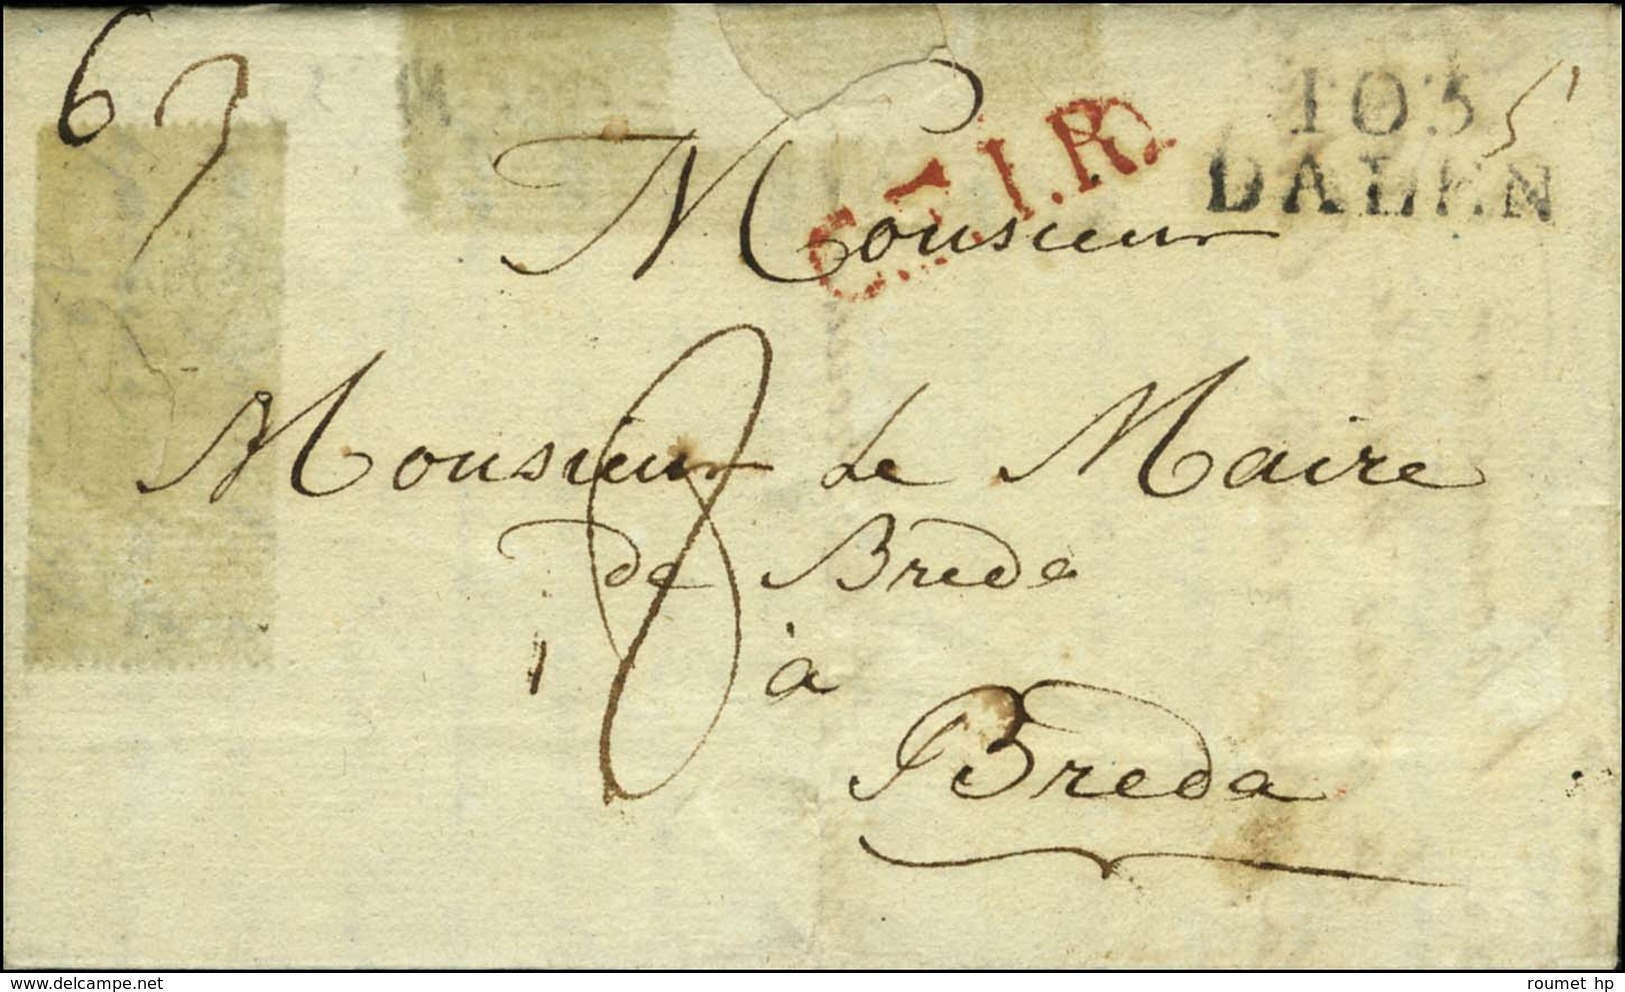 63
103
DALEN
5
C.T.I.R.
Monsieur
Monsieur Le Maire
de Breda
8
à
Breda
www.delcampe.net
roumet hp